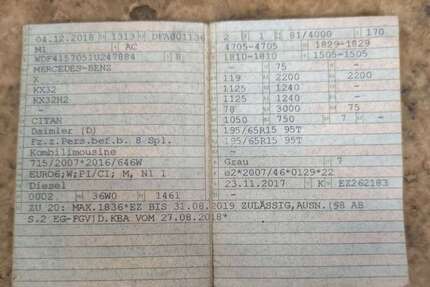 04.12.2018 1313
M1 AC
WDF4157051U247884 8
MERCEDES-BENZ
X
KX32
KX32H2
CITAN
Daimler (D)
Fz.z.Pers.bef.b. 8 Spl.
Kombilimousine
715/2007*2016/646W
EURO6;W;PI/CI; M, N1 I
Diesel
0002 36W0 1461
2 1 81/4000 170
4705-4705 1829-1829
1810-1810 1505-1505
- 75
119 2200 2200
1125 1240 -
1125 1240 -
78 3000 75
1050 750 7 -
195/65R15 95T
195/65R15 95T
-
Grau 7
e2*2007/46*0129*22
23.11.2017 K EZ262183
ZU 20: MAX.1836*EZ BIS 31.08.2019 ZULÄSSIG,AUSN.(§8 AB
S.2 EG-FGV)D.KBA VOM 27.08.2018*